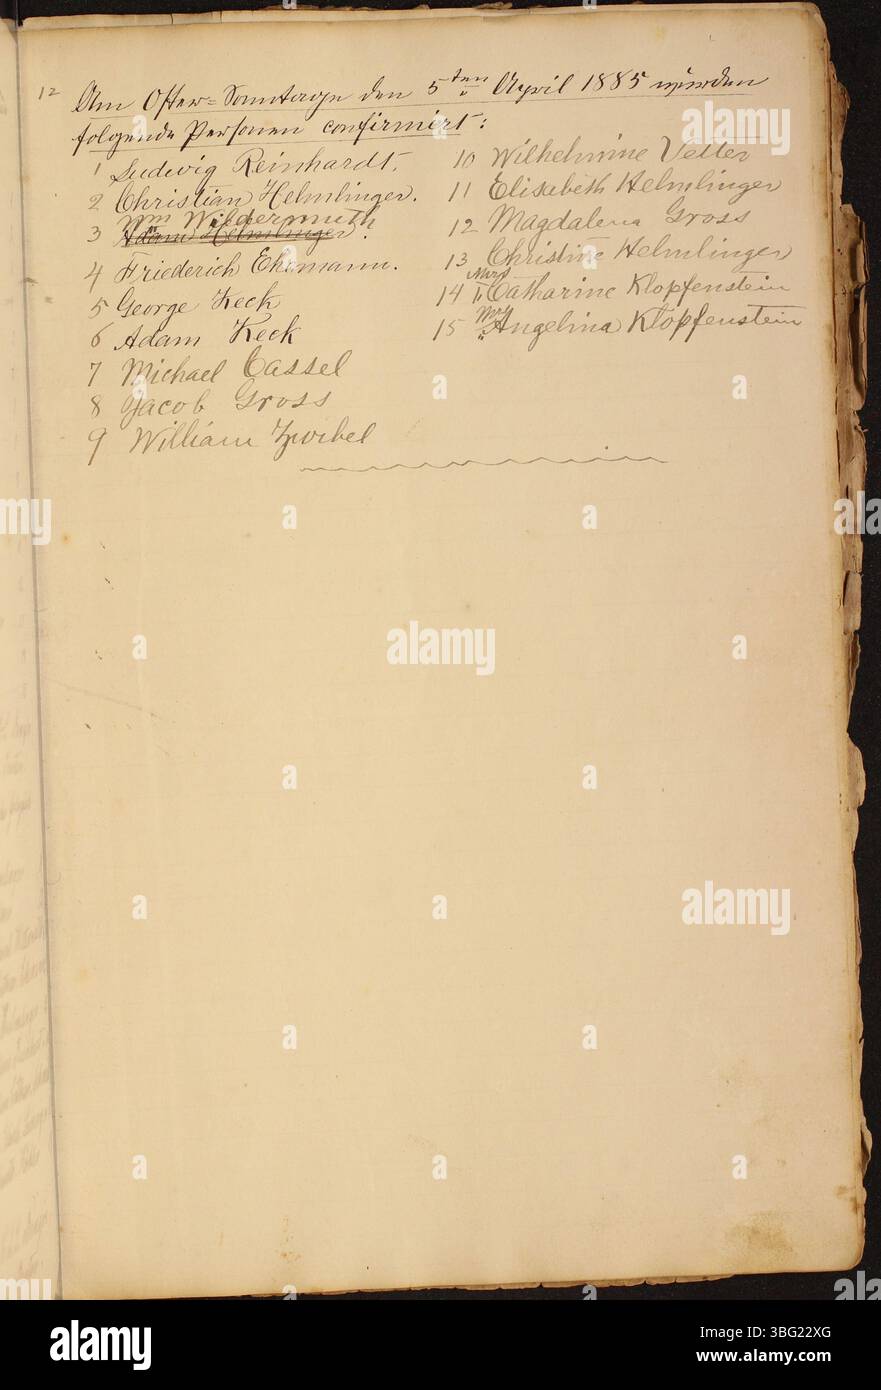 12
Am Oster-Sonntage den 5ten April 1885 wurden
folgende Personen confirmirt:
1 Ludwig Reinhardt.
2 Christian Helmlinger.
Wm Wildermuth
3 Adam Helmlinger.
4 Friederich Ehemann.
5 George Keck
6 Adam Keck
7 Michael Cassel
8 Jacob Gross
9 William Zwibel
10 Wilhelmine Vetter
11 Elisabeth Helmlinger
12 Magdalena Gross
13 Christine Helmlinger
Mrs
14 " Catharine Klopfenstein
Mrs
15 " Angelina Klopfenstein
alamy
alamy
alamy
Image ID: 3BG22XG
www.alamy.com